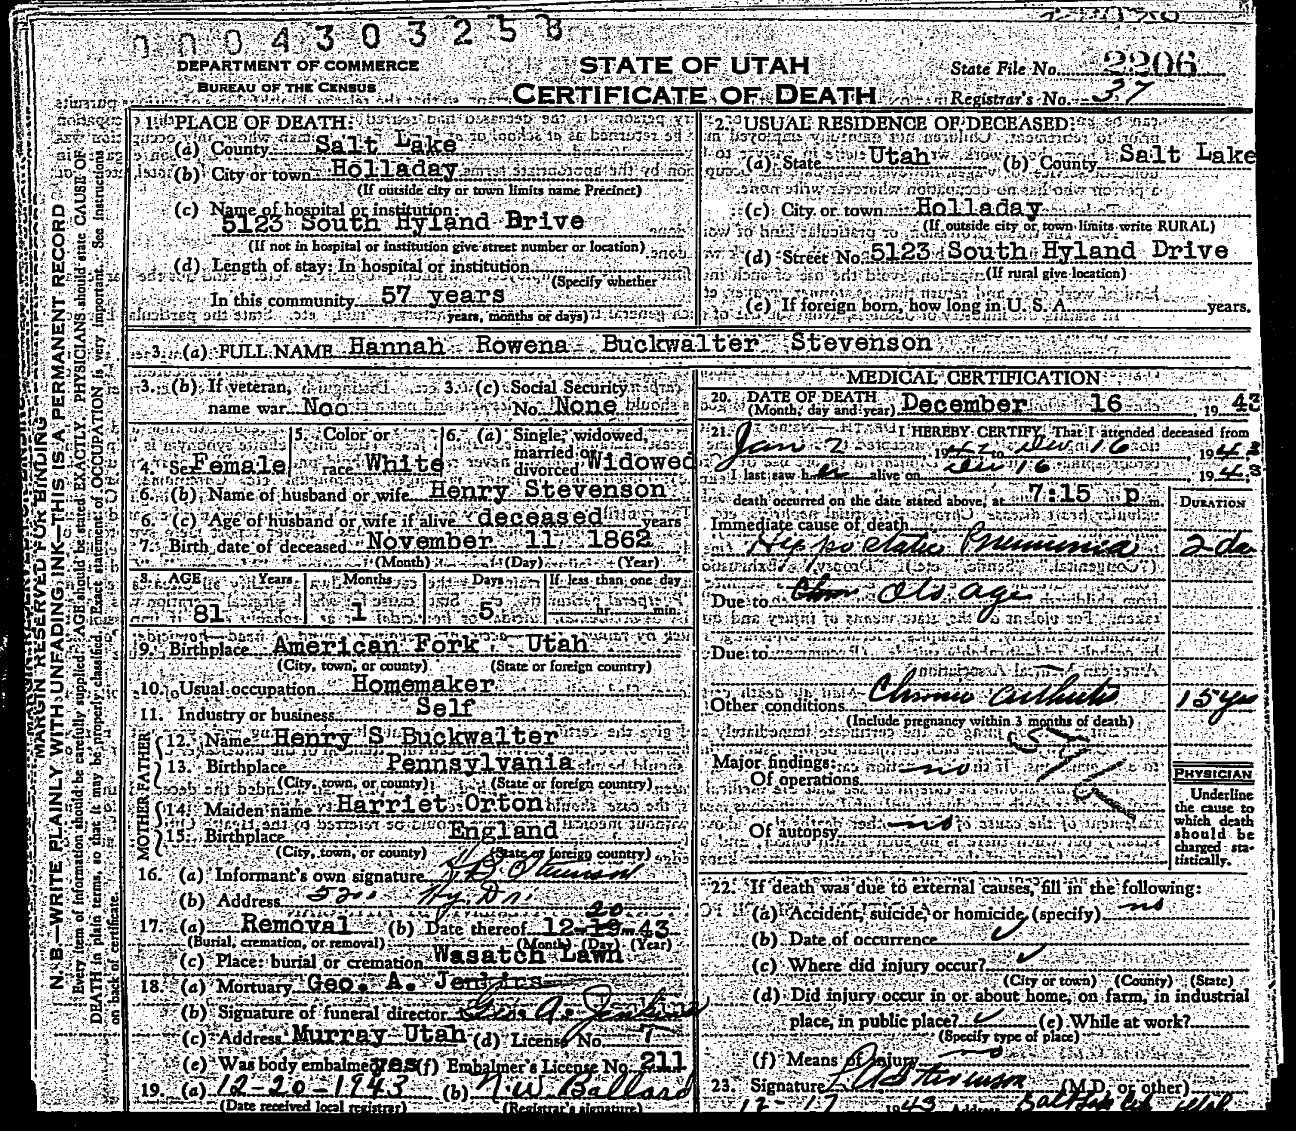 0004303258
DEPARTMENT OF COMMERCE
BUREAU OF THE CENSUS
STATE OF UTAH
CERTIFICATE OF DEATH
State File No. 2206
Registrar's No. 37
MARGIN RESERVED FOR BINDING
N. B.—WRITE PLAINLY WITH UNFADING INK—THIS IS A PERMANENT RECORD
Every item of information should be carefully supplied. AGE should be stated EXACTLY. PHYSICIANS should state CAUSE OF
DEATH in plain terms, so that it may be properly classified. Exact statement of OCCUPATION is very important. See instructions
on back of certificate.
1. PLACE OF DEATH:
(a) County Salt Lake
(b) City or town Holladay
(If outside city or town limits name Precinct)
(c) Name of hospital or institution
5123 South Hyland Drive
(If not in hospital or institution give street number or location)
(d) Length of stay: In hospital or institution
(Specify whether
In this community 57 years
years, months or days)
2. USUAL RESIDENCE OF DECEASED:
(a) State Utah (b) County Salt Lake
(c) City or town Holladay
(If outside city or town limits write RURAL)
(d) Street No. 5123 South Hyland Drive
(If rural give location)
(e) If foreign born, how long in U. S. A. years.
3. (a) FULL NAME Hannah Rowena Buckwalter Stevenson
3. (b) If veteran, name war Noo
3. (c) Social Security No. None
4. Sex Female
5. Color or race White
6. (a) Single, widowed, married or divorced Widowed
6. (b) Name of husband or wife Henry Stevenson
6. (c) Age of husband or wife if alive deceased years
7. Birth date of deceased November 11 1862
(Month) (Day) (Year)
8. AGE Years Months Days If less than one day
81 1 5 hr. min.
9. Birthplace American Fork Utah
(City, town, or county) (State or foreign country)
10. Usual occupation Homemaker
11. Industry or business Self
FATHER
12. Name Henry S Buckwalter
13. Birthplace Pennsylvania
(City, town, or county) (State or foreign country)
MOTHER
14. Maiden name Harriet Orton
15. Birthplace England
(City, town, or county) (State or foreign country)
16. (a) Informant's own signature Stevenson
(b) Address Hy. Dr.
17. (a) Removal (b) Date thereof 12-19-43 20
(Burial, cremation, or removal) (Month) (Day) (Year)
(c) Place: burial or cremation Wasatch Lawn
18. (a) Mortuary Geo. A. Jenkins
(b) Signature of funeral director Geo. A. Jenkins
(c) Address Murray Utah (d) License No. 7
(e) Was body embalmed yes (f) Embalmer's License No. 211
19. (a) 12-20-1943 (b) N. W. Ballard
(Date received local registrar) (Registrar's signature)
MEDICAL CERTIFICATION
20. DATE OF DEATH
(Month, day and year) December 16, 1943
21. I HEREBY CERTIFY, That I attended deceased from
Jan 2, 1942 to Dec 16, 1943
I last saw her alive on Dec 16, 1943
death occurred on the date stated above, at 7:15 p m. DURATION
Immediate cause of death
Hyppostatic Pneumonia 2 da
Due to Old age
Due to
Other conditions Chronic Arthritis 15 yrs
(Include pregnancy within 3 months of death)
Major findings:
Of operations no
Of autopsy no
PHYSICIAN
Underline
the cause to
which death
should be
charged sta-
tistically.
22. If death was due to external causes, fill in the following:
(a) Accident, suicide, or homicide, (specify) no
(b) Date of occurrence
(c) Where did injury occur?
(City or town) (County) (State)
(d) Did injury occur in or about home, on farm, in industrial
place, in public place? (e) While at work?
(Specify type of place)
(f) Means of Injury no
23. Signature Stevenson (M.D. or other)
12-17 1943 Address